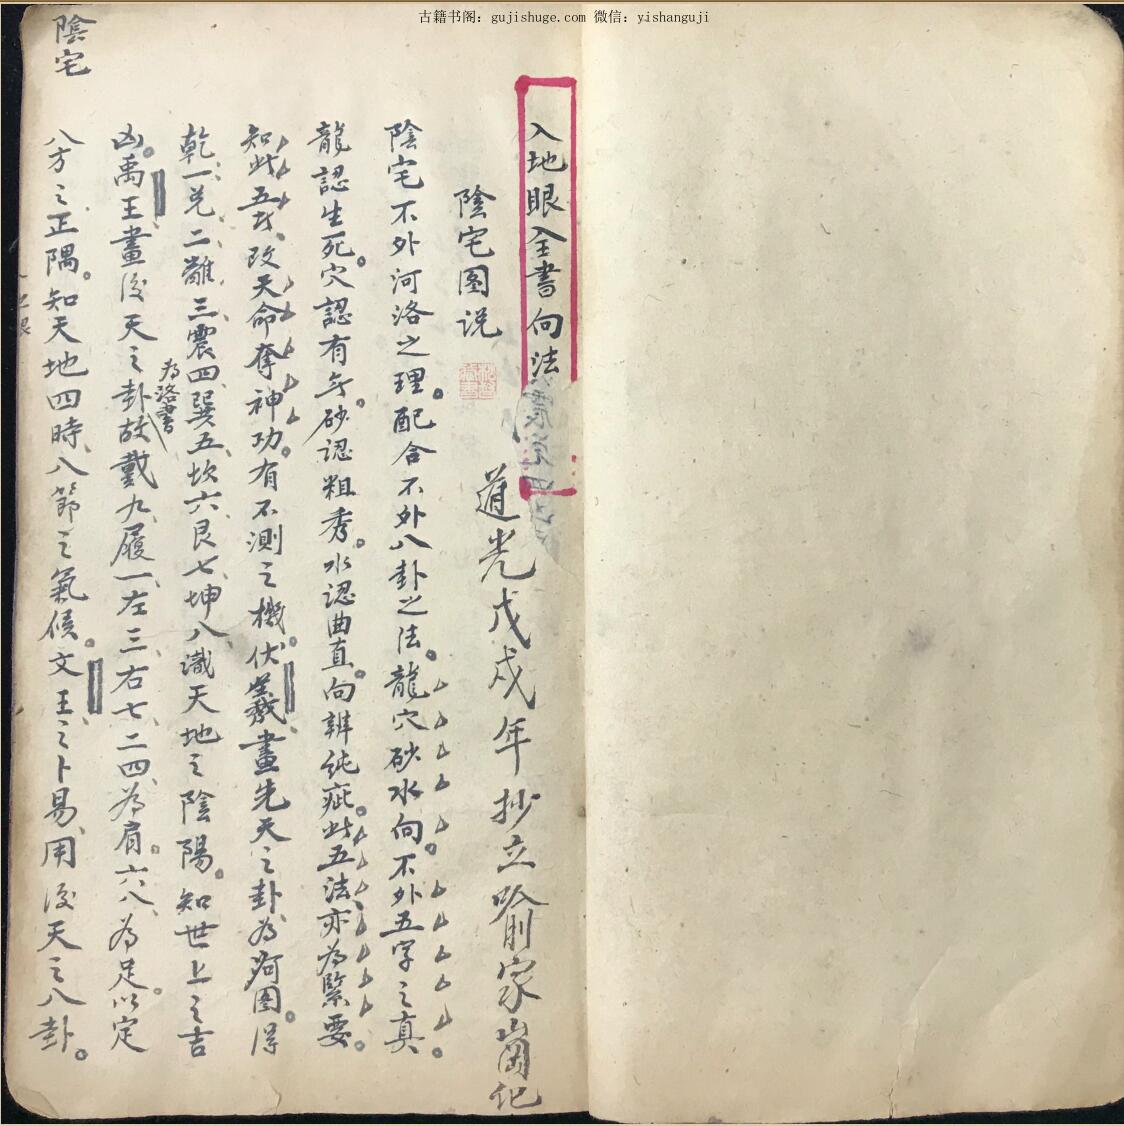 古籍书阁：gujishuge.com 微信：yishanguji
入地眼全書向法
陰宅图说
道光戊戌年抄立喻家
陰宅不外河洛之理。配合不外八卦之法。龍穴砂水向。不外五字之真。
龍認生死。穴認有乞。砂認粗秀。水認曲直。向辨純疵。此五法亦為緊要。
知此五者。改天命奪神功。有不測之機。伏羲畫先天之卦、為河图。得
乾一、兑二、離三、震四、巽五、坎六、艮七、坤八、識天地之陰陽。知世上之吉
凶。禹王畫後天之卦為洛書故戴九、履一、左三、右七、二四、為肩。六八、為足。以定
八方之正隅。知天地四時、八節之氣候。文王之卜易、用後天之八卦。
陰宅